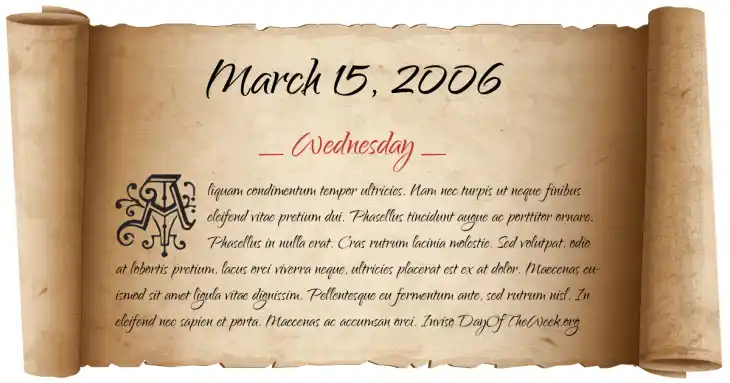 March 15, 2006
— Wednesday —
Aliquam condimentum tempor ultricies. Nam nec turpis ut neque finibus
eleifend vitae pretium dui. Phasellus tincidunt augue ac porttitor ornare.
Phasellus in nulla erat. Cras rutrum lacinia molestie. Sed volutpat, odio
at lobortis pretium, lacus orci viverra neque, ultricies placerat est ex at dolor. Maecenas eu-
ismod sit amet ligula vitae dignissim. Pellentesque eu fermentum ante, sed rutrum nisl. In
eleifend nec sapien et porta. Maecenas ac accumsan orci. Inviso DayOfTheWeek.org